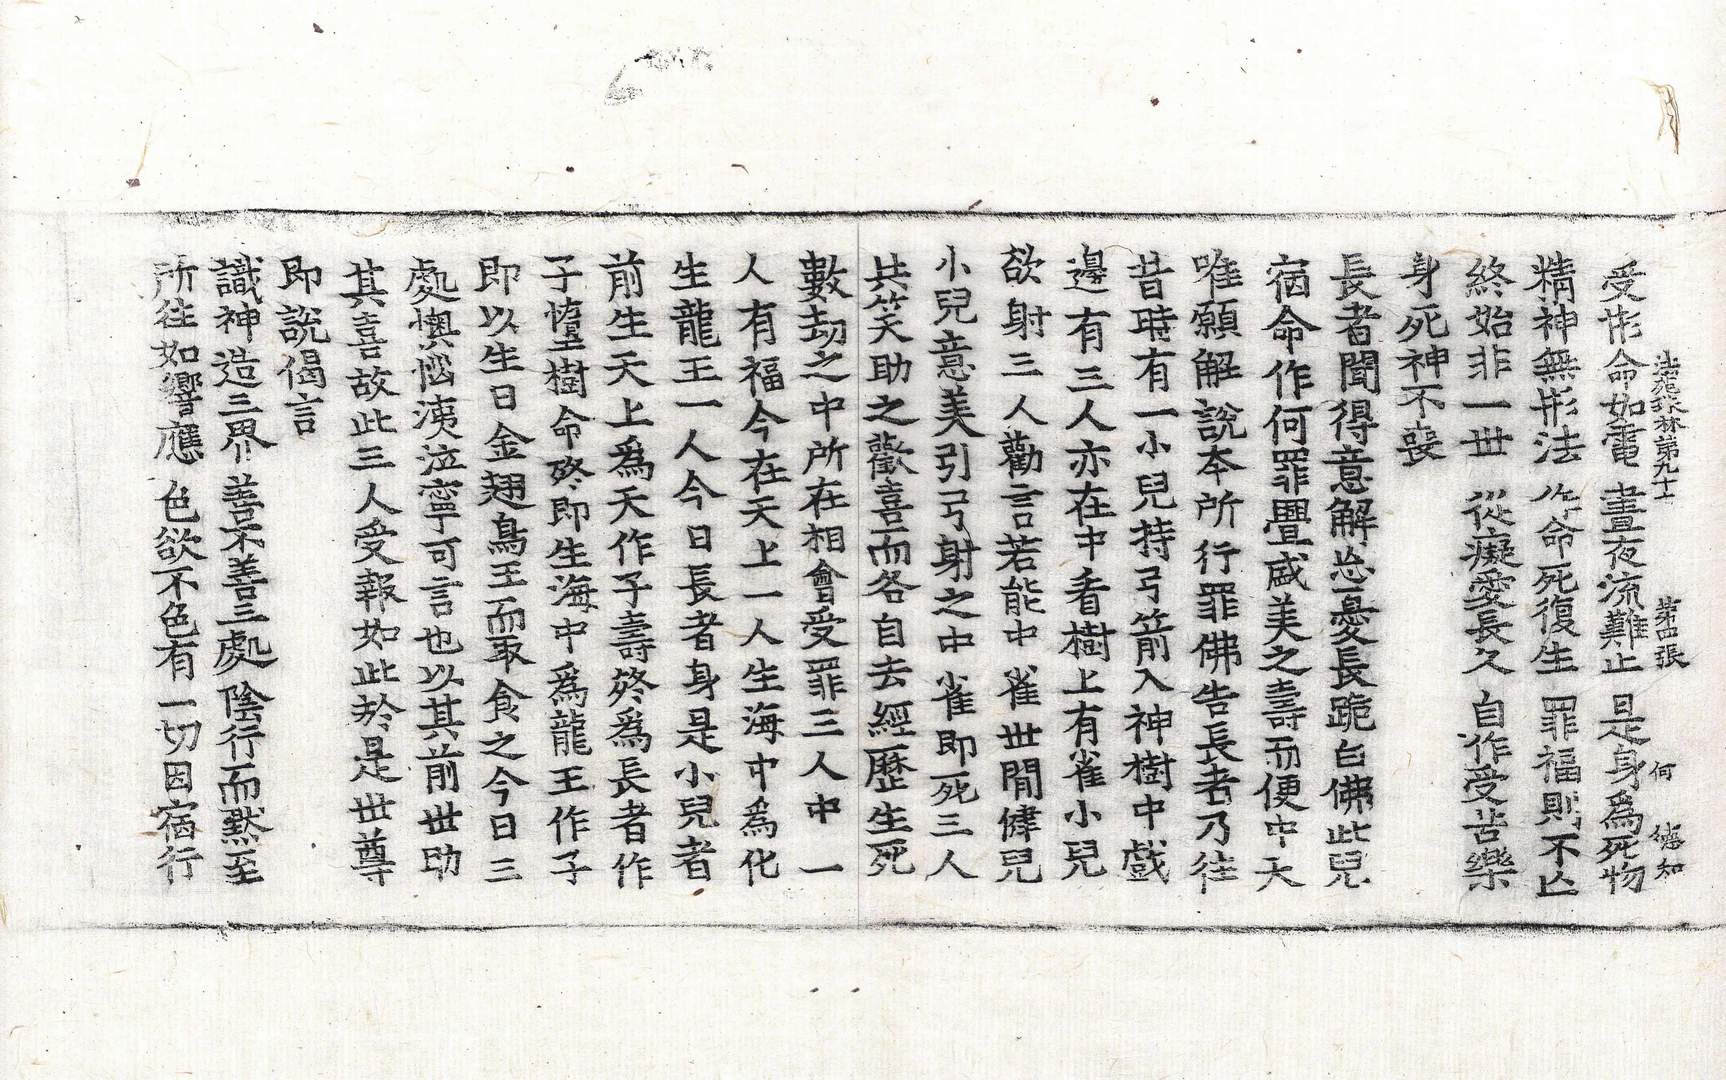 法苑珠林第九十七 第四張 何 德知
受形命如電 晝夜流難止 是身爲死物
精神無形法 作命死復生 罪福則不亡
終始非一世 從癡愛長久 自作受苦樂
身死神不喪
長者聞得意解忘憂長跪白佛此兒
宿命作何罪舋盛美之壽而便中夭
唯願解說本所行罪佛告長者乃往
昔時有一小兒持弓箭入神樹中戲
邊有三人亦在中看樹上有雀小兒
欲射三人勸言若能中雀世間健兒
小兒意美引弓射之中雀即死三人
共笑助之歡喜而各自去經歷生死
數劫之中所在相會受罪三人中一
人有福今在天上一人生海中爲化
生龍王一人今日長者身是小兒者
前生天上爲天作子壽終爲長者作
子墮樹命終即生海中爲龍王作子
即以生日金翅鳥王而取食之今日三
處懊惱涕泣寧可言也以其前世助
其喜故此三人受報如此於是世尊
即說偈言
識神造三界 善不善三處 陰行而默至
所往如響應 色欲不色有 一切因宿行